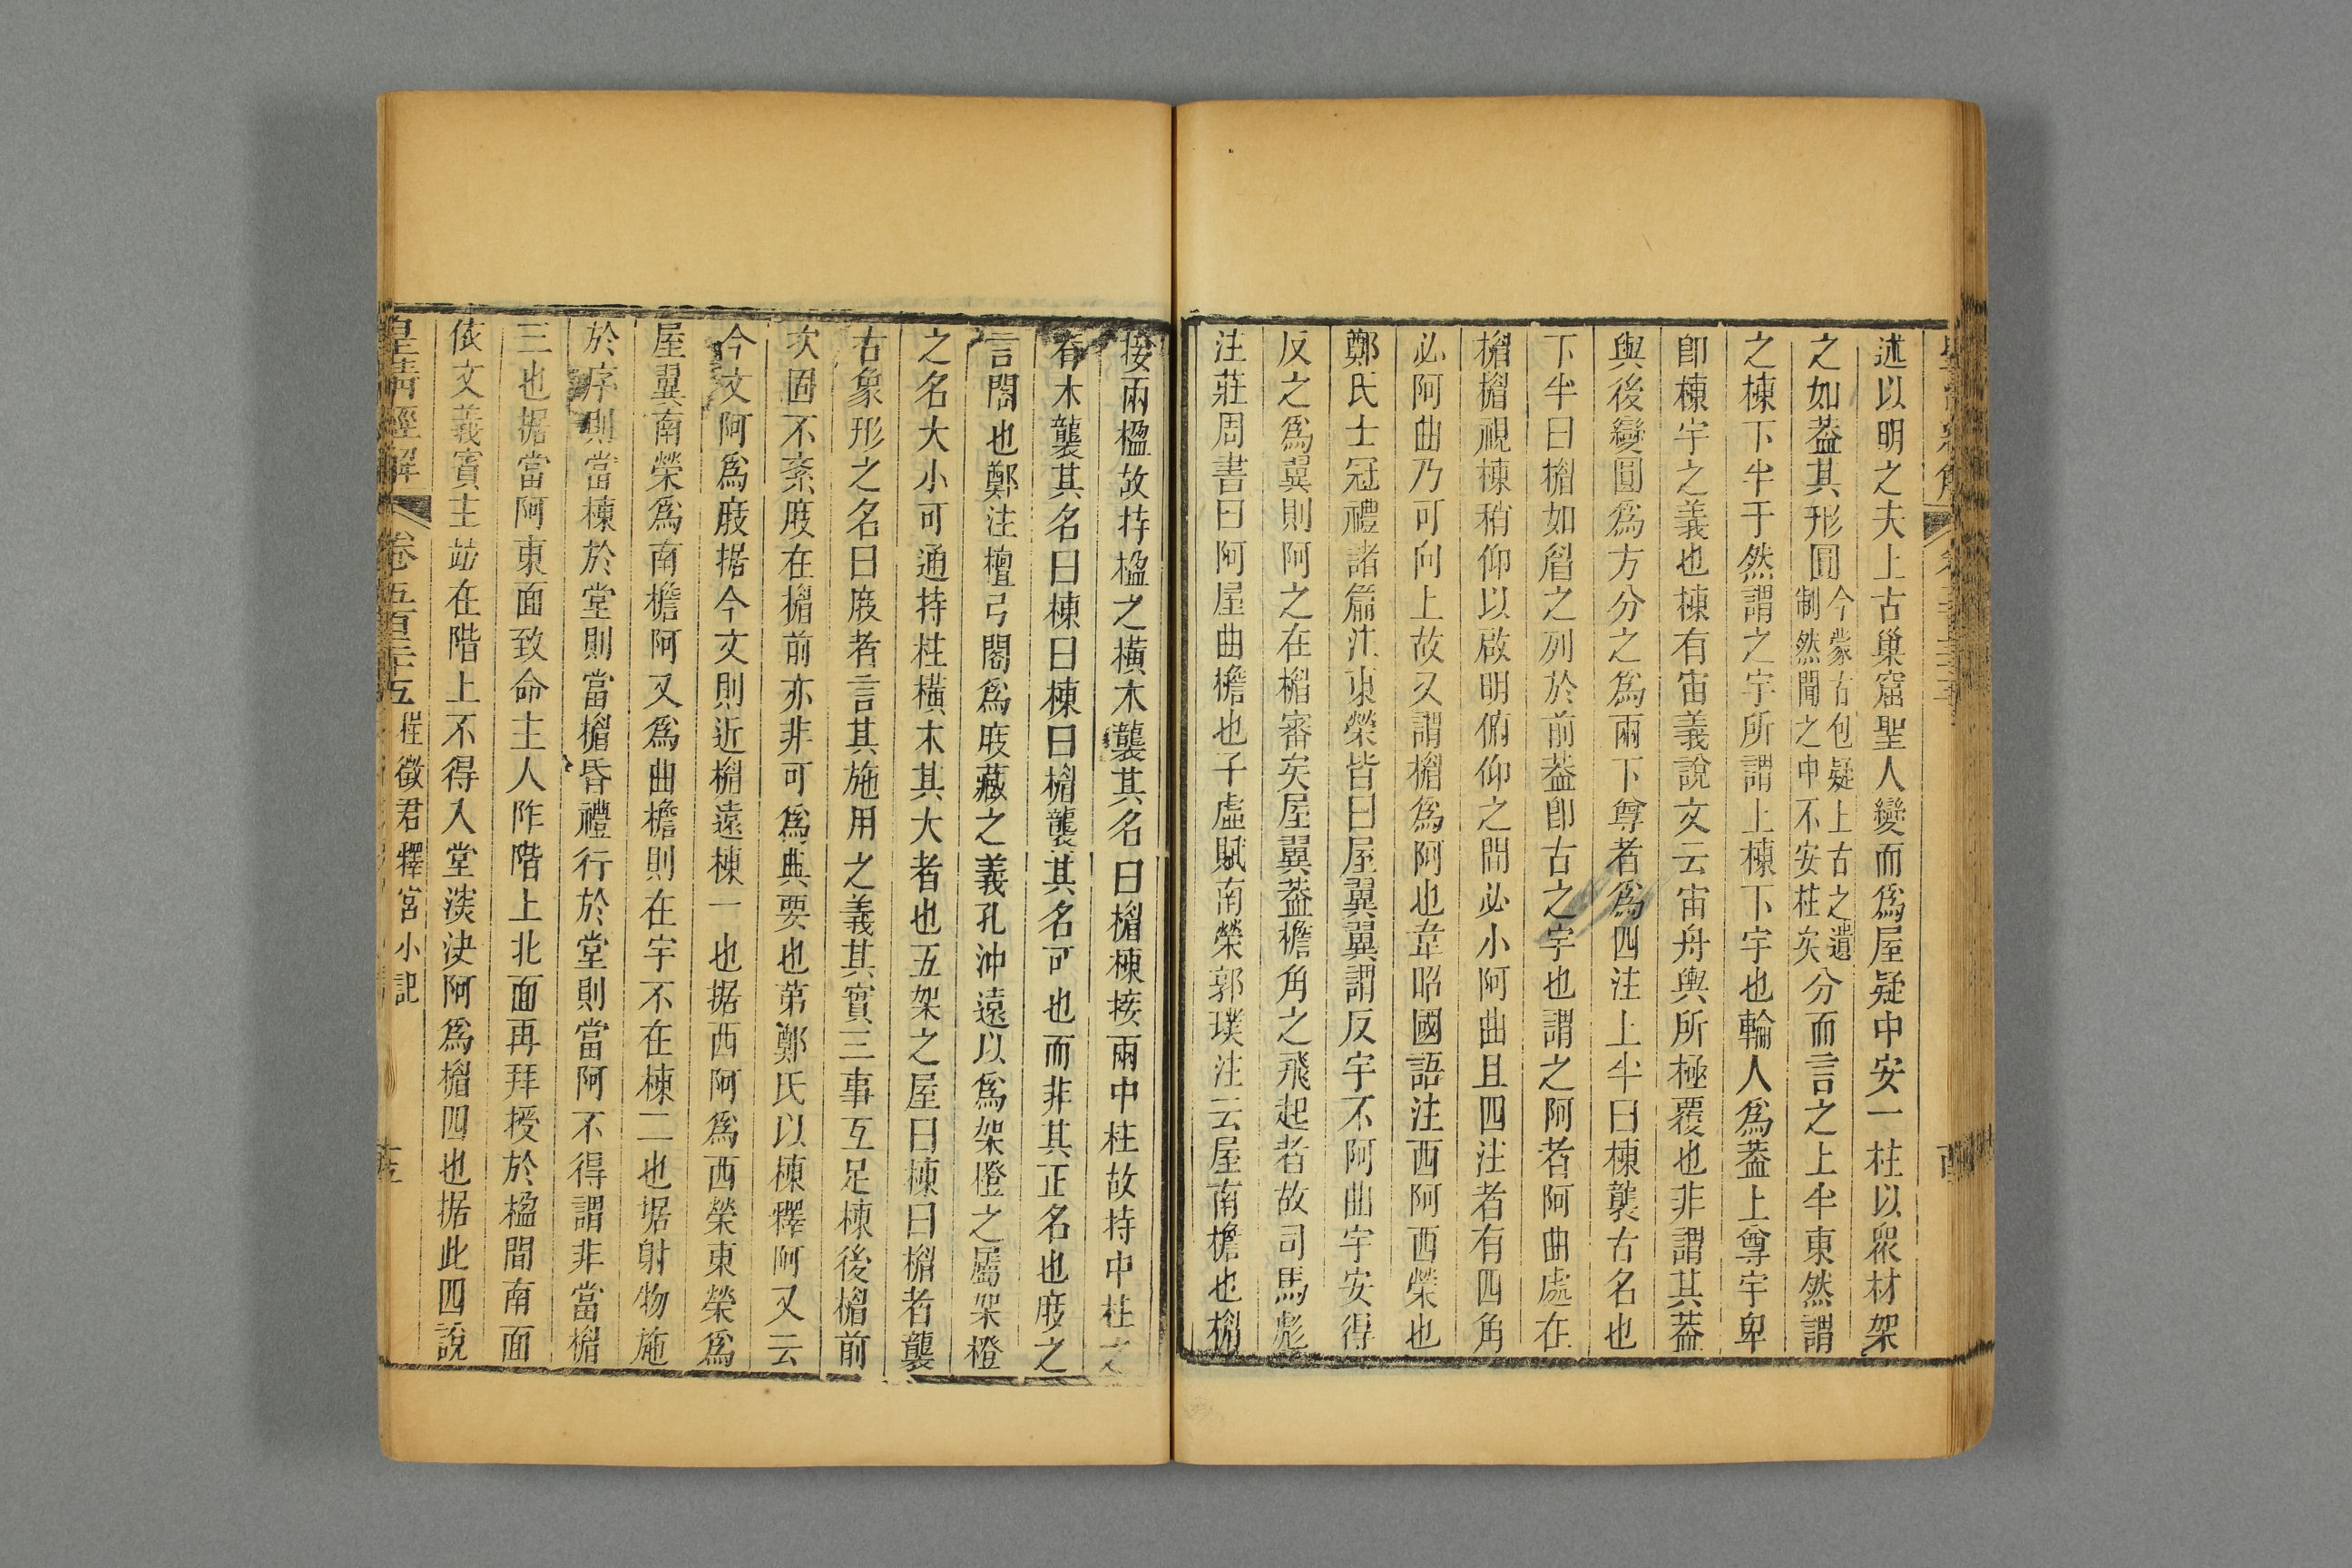 述以明之夫上古巢窟聖人變而爲屋疑中安一柱以眾材架
之如葢其形圓今蒙古包疑上古之遺制然聞之中不安柱矣分而言之上半東然謂
之棟下半于然謂之宇所謂上棟下宇也輪人爲葢上尊宇卑
卽棟宇之義也棟有宙義說文云宙舟輿所極覆也非謂其葢
與後變圓爲方分之爲兩下尊者爲四注上半曰棟襲古名也
下半曰楣如眉之列於前葢卽古之宇也謂之阿者阿曲處在
楣楣視棟稍仰以啟明俯仰之間必小阿曲且四注者有四角
必阿曲乃可向上故又謂楣爲阿也韋昭國語注西阿西榮也
鄭氏士冠禮諸篇注東榮皆曰屋翼翼謂反宇不阿曲宇安得
反之爲翼則阿之在楣審矣屋翼葢檐角之飛起者故司馬彪
注莊周書曰阿屋曲檐也子虛賦南榮郭璞注云屋南檐也楣
接兩楹故持楹之橫木襲其名曰楣棟接兩中柱故持中柱之
脊木襲其名曰棟曰棟曰楣襲其名可也而非其正名也庪之
言閣也鄭注檀弓閣爲庪藏之義孔沖遠以爲架橙之屬架橙
之名大小可通持柱橫木其大者也五架之屋曰棟曰楣者襲
古象形之名曰庪者言其施用之義其實三事互足棟後楣前
次固不紊庪在楣前亦非可爲典要也第鄭氏以棟釋阿又云
今文阿爲庪据今文則近楣遠棟一也据西阿爲西榮東榮爲
屋翼南榮爲南檐阿又爲曲檐則在宇不在棟二也据射物施
於序則當棟於堂則當楣昏禮行於堂則當阿不得謂非當楣
三也据當阿東面致命主人阼階上北面再拜授於楹間南面
依文義賓主竝在階上不得入堂淡決阿爲楣四也据此四說
皇淸經解 卷五百三十五 程徵君釋宮小記